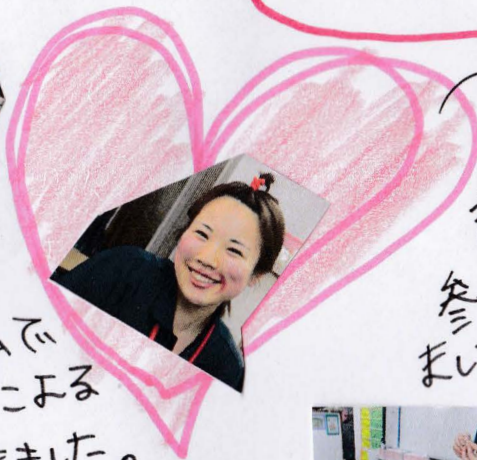 参
まし
ムで
による
きました。